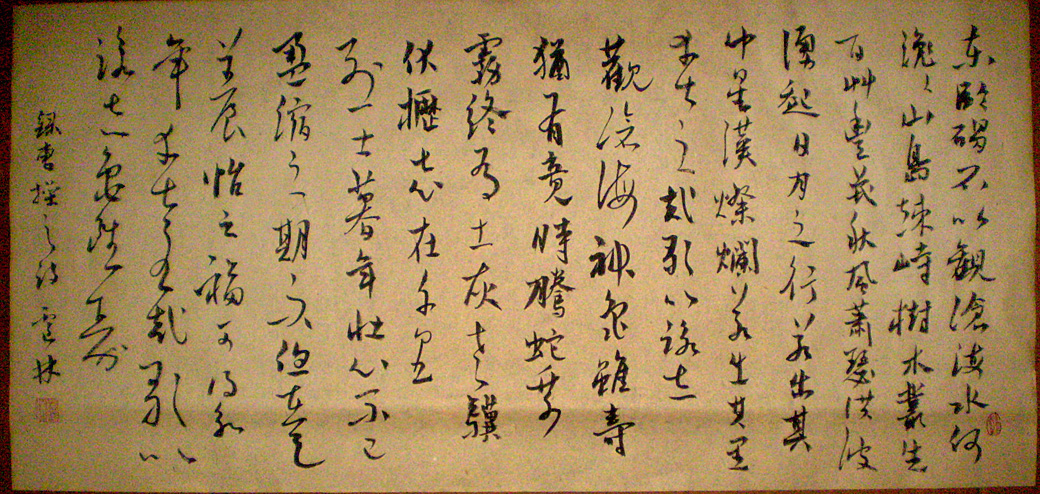 东臨碣石以觀滄海水何
澹々山島竦峙樹木叢生
百艸豐茂秋風蕭瑟洪波
湧起日月之行若出其
中星漢燦爛若出其里
幸甚至哉歌以詠志
觀滄海神龜雖壽
猶有竟時騰蛇乘
霧終為土灰老驥
伏櫪志在千里
烈士暮年壯心不已
盈縮之期不但在天
養怡之福可得永
年幸甚至哉歌以
詠志龜雖壽
錄曹操之詩雲林